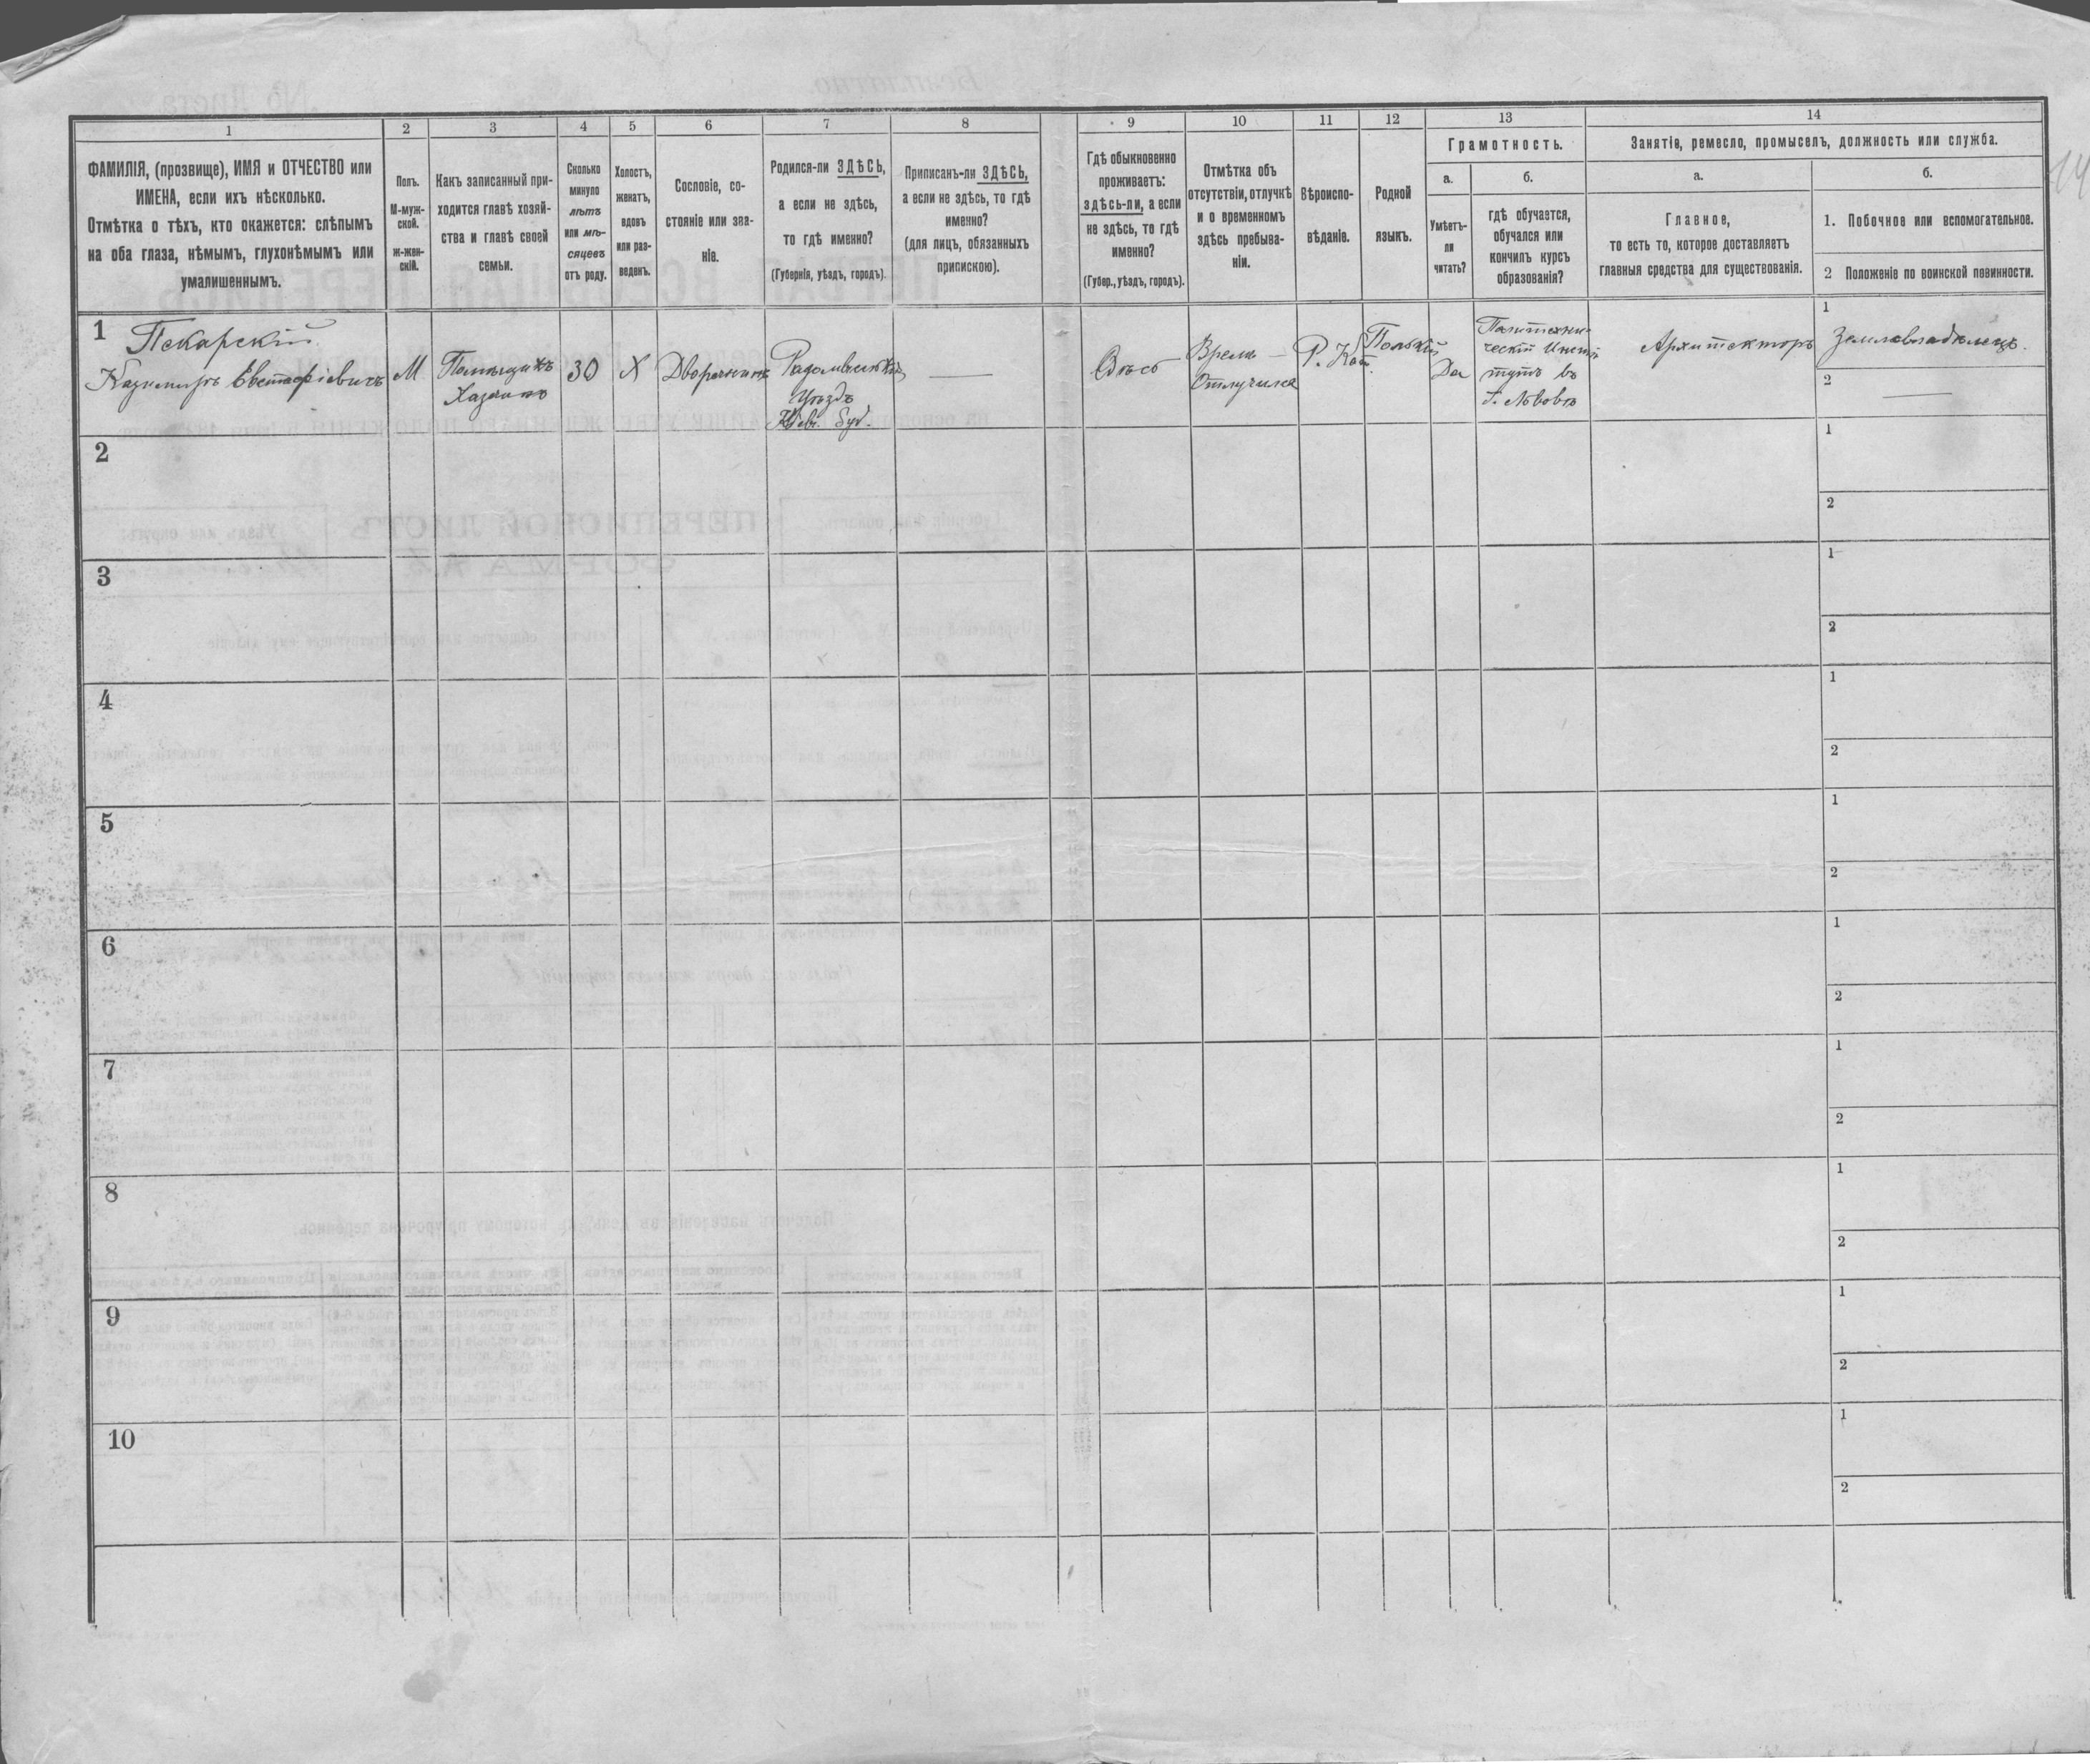 1
2
3
4
5
6
7
8
9
10
11
12
13
14
ФАМИЛІЯ, (прозвище), ИМЯ и ОТЧЕСТВО или
ИМЕНА, если ихъ нѣсколько.
Отмѣтка о тѣхъ, кто окажется: слѣпымъ
на оба глаза, нѣмымъ, глухонѣмымъ или
умалишеннымъ.
Полъ.
М-муж-
ской.
Ж-жен-
скій.
Какъ записанный при-
ходится главѣ хозяй-
ства и главѣ своей
семьи.
Сколько
минуло
лѣтъ
или мѣ-
сяцевъ
отъ роду.
Холостъ,
женатъ,
вдовъ
или раз-
веденъ.
Сословіе, со-
стояніе или зва-
ніе.
Родился-ли ЗДѢСЬ,
а если не здѣсь,
то гдѣ именно?
(Губернія, уѣздъ, городъ).
Приписанъ-ли ЗДѢСЬ,
а если не здѣсь, то гдѣ
именно?
(для лицъ, обязанныхъ
припискою).
Гдѣ обыкновенно
проживаетъ:
здѣсь-ли, а если
не здѣсь, то гдѣ
именно?
(Губер., уѣздъ, городъ).
Отмѣтка объ
отсутствіи, отлучкѣ
и о временномъ
здѣсь пребыва-
ніи.
Вѣроиспо-
вѣданіе.
Родной
языкъ.
Грамотность.
а.
Умѣетъ-
ли
читать?
б.
гдѣ обучается,
обучался или
кончилъ курсъ
образованія?
Занятіе, ремесло, промыселъ, должность или служба.
а.
Главное,
то есть то, которое доставляетъ
главныя средства для существованія.
б.
1. Побочное или вспомогательное.
2 Положеніе по воинской повинности.
1 Пекарскій
Казимиръ Евстафіевичъ
М
Помѣщикъ
Хазяинъ
30
Х
Дворянинъ
Радомысльскій
Уѣздъ
Кіев. Губ.
—
Здѣсь
Время—
Отлучился
Р. Кат.
Польскій
Да
Политехни-
ческій Инсти
тутъ въ
г. Львовѣ
Архитекторъ
1
Землевладѣлецъ.
2
—
2
1
2
3
1
2
4
1
2
5
1
2
6
1
2
7
1
2
8
1
2
9
1
2
10
1
2